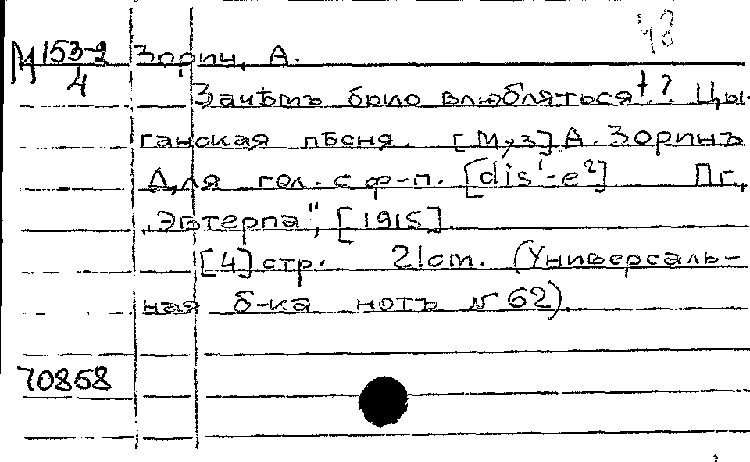 43
М 153-2/4 Зорин, А.
Зачѣмъ было влюбляться!? Цы-
ганская пѣсня. [Муз] А. Зоринъ
Для гол. с ф-п. [dis¹-e²] Пг.,
„Эвтерпа", [1915]
[4] стр. 21 cm. (Универсаль-
ная б-ка нотъ № 62)
70858